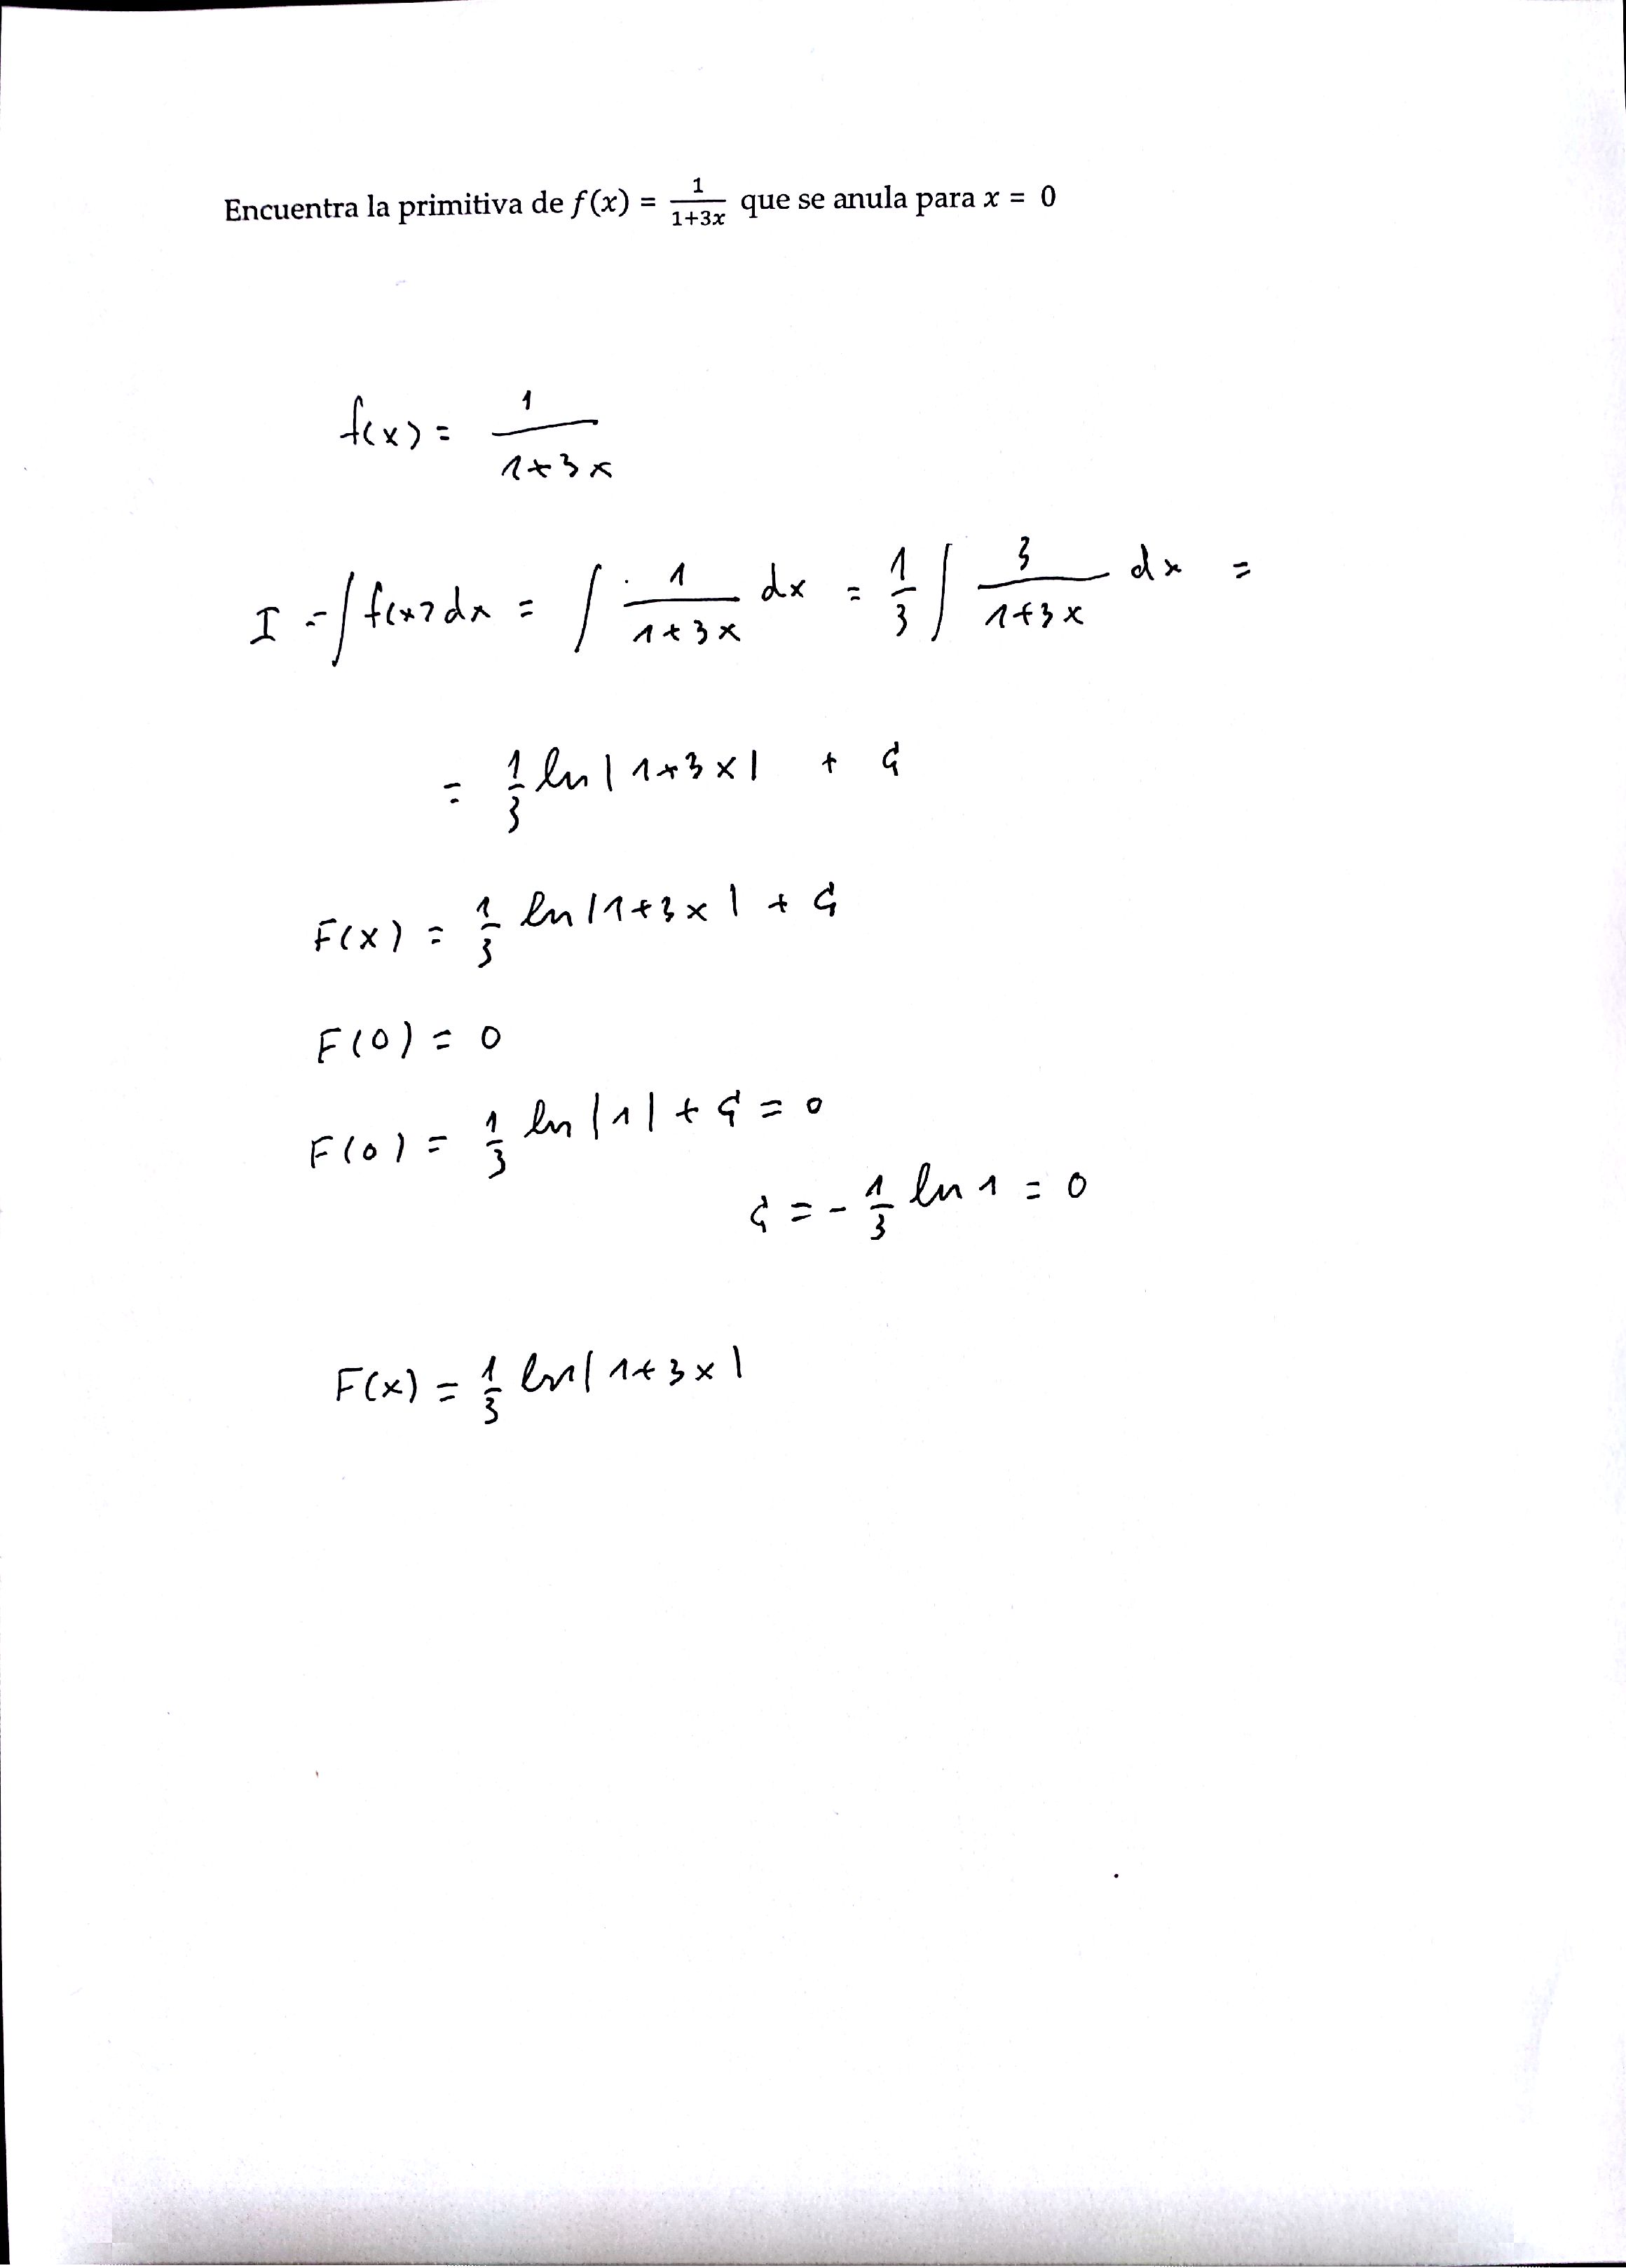 Encuentra la primitiva de f(x) = 1/(1+3x) que se anula para x = 0
f(x) = 1/(1+3x)
I = ∫ f(x) dx = ∫ 1/(1+3x) dx = 1/3 ∫ 3/(1+3x) dx =
= 1/3 ln|1+3x| + C
F(x) = 1/3 ln|1+3x| + C
F(0) = 0
F(0) = 1/3 ln|1| + C = 0
C = - 1/3 ln 1 = 0
F(x) = 1/3 ln|1+3x|